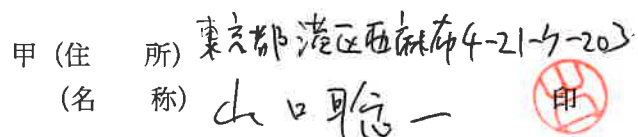 甲（住　　所）東京都港区西麻布4-21-7-203
（名　　称）山口聡一　印